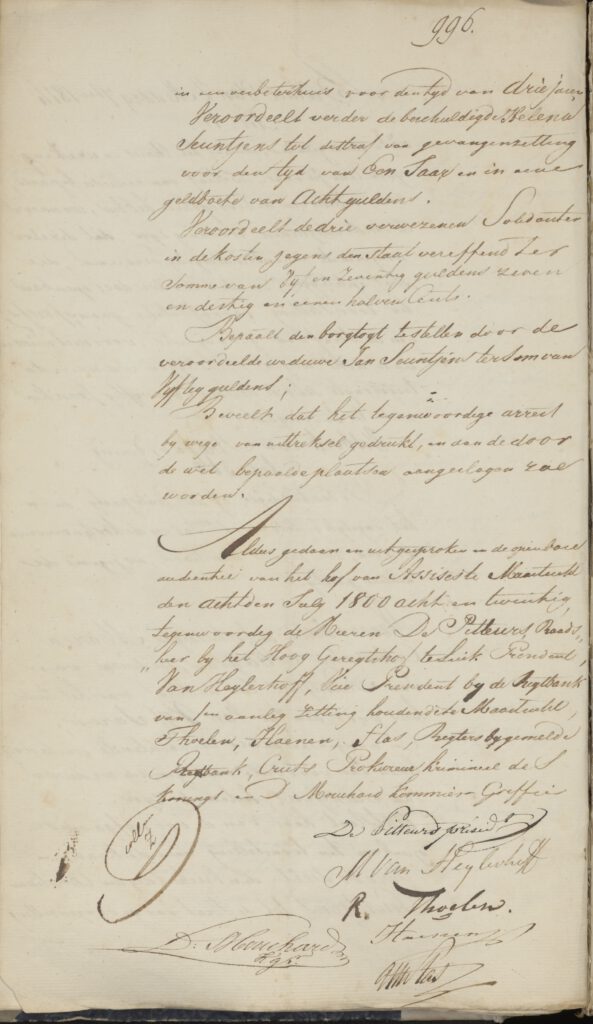 996.
in een verbeterhuis voor den tyd van drie jaren
Veroordeelt verder de beschuldigde Helena
Seuntjens tot de straf van gevangenzetting
voor den tyd van Een Jaar en in eene
geldboete van Acht guldens.
Veroordeelt de drie verwezenen Solidairter
in de kosten jegens den Staat vereffend ter
somme van vyf en zeventig guldens zeven
en dertig en eenen halven Cents.
Bepaalt den borgtogt te stellen door de
veroordeelde weduwe Jan Seuntjens ter som van
Vyftig guldens;
Beveelt dat het tegenwoordige arrest
by wege van uittreksel gedrukt, en aan de door
de wet bepaalde plaatsen aangeslagen zal
worden.
Aldus gedaan en uitgesproken in de openbare
audientie van het hof van Assises te Maastricht
den achtden July 1800 acht en twintig,
tegenwoordig de Heeren De Pitteurs, Raads„
„heer by het Hoog Geregtshof te Luik President,
Van Heylerhoff, Vice President by de Regtbank
van 1en aanleg zitting houdende te Maastricht,
Thoelen, Haenen, Flas, Regters by gemelde
Regtbank, Cruts Prokureur krimineel des
konings en D. Mouchard kommies Griffier
De Pitteurs presidt
collon
M Van Heylerhoff
R. Thoelen.
Haenen
D. Mouchard